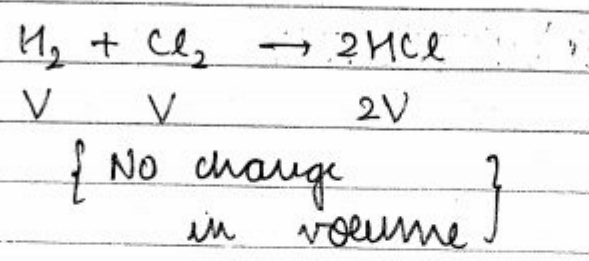 H₂ + Cl₂ → 2HCl
V V 2V
{ No change
in volume }